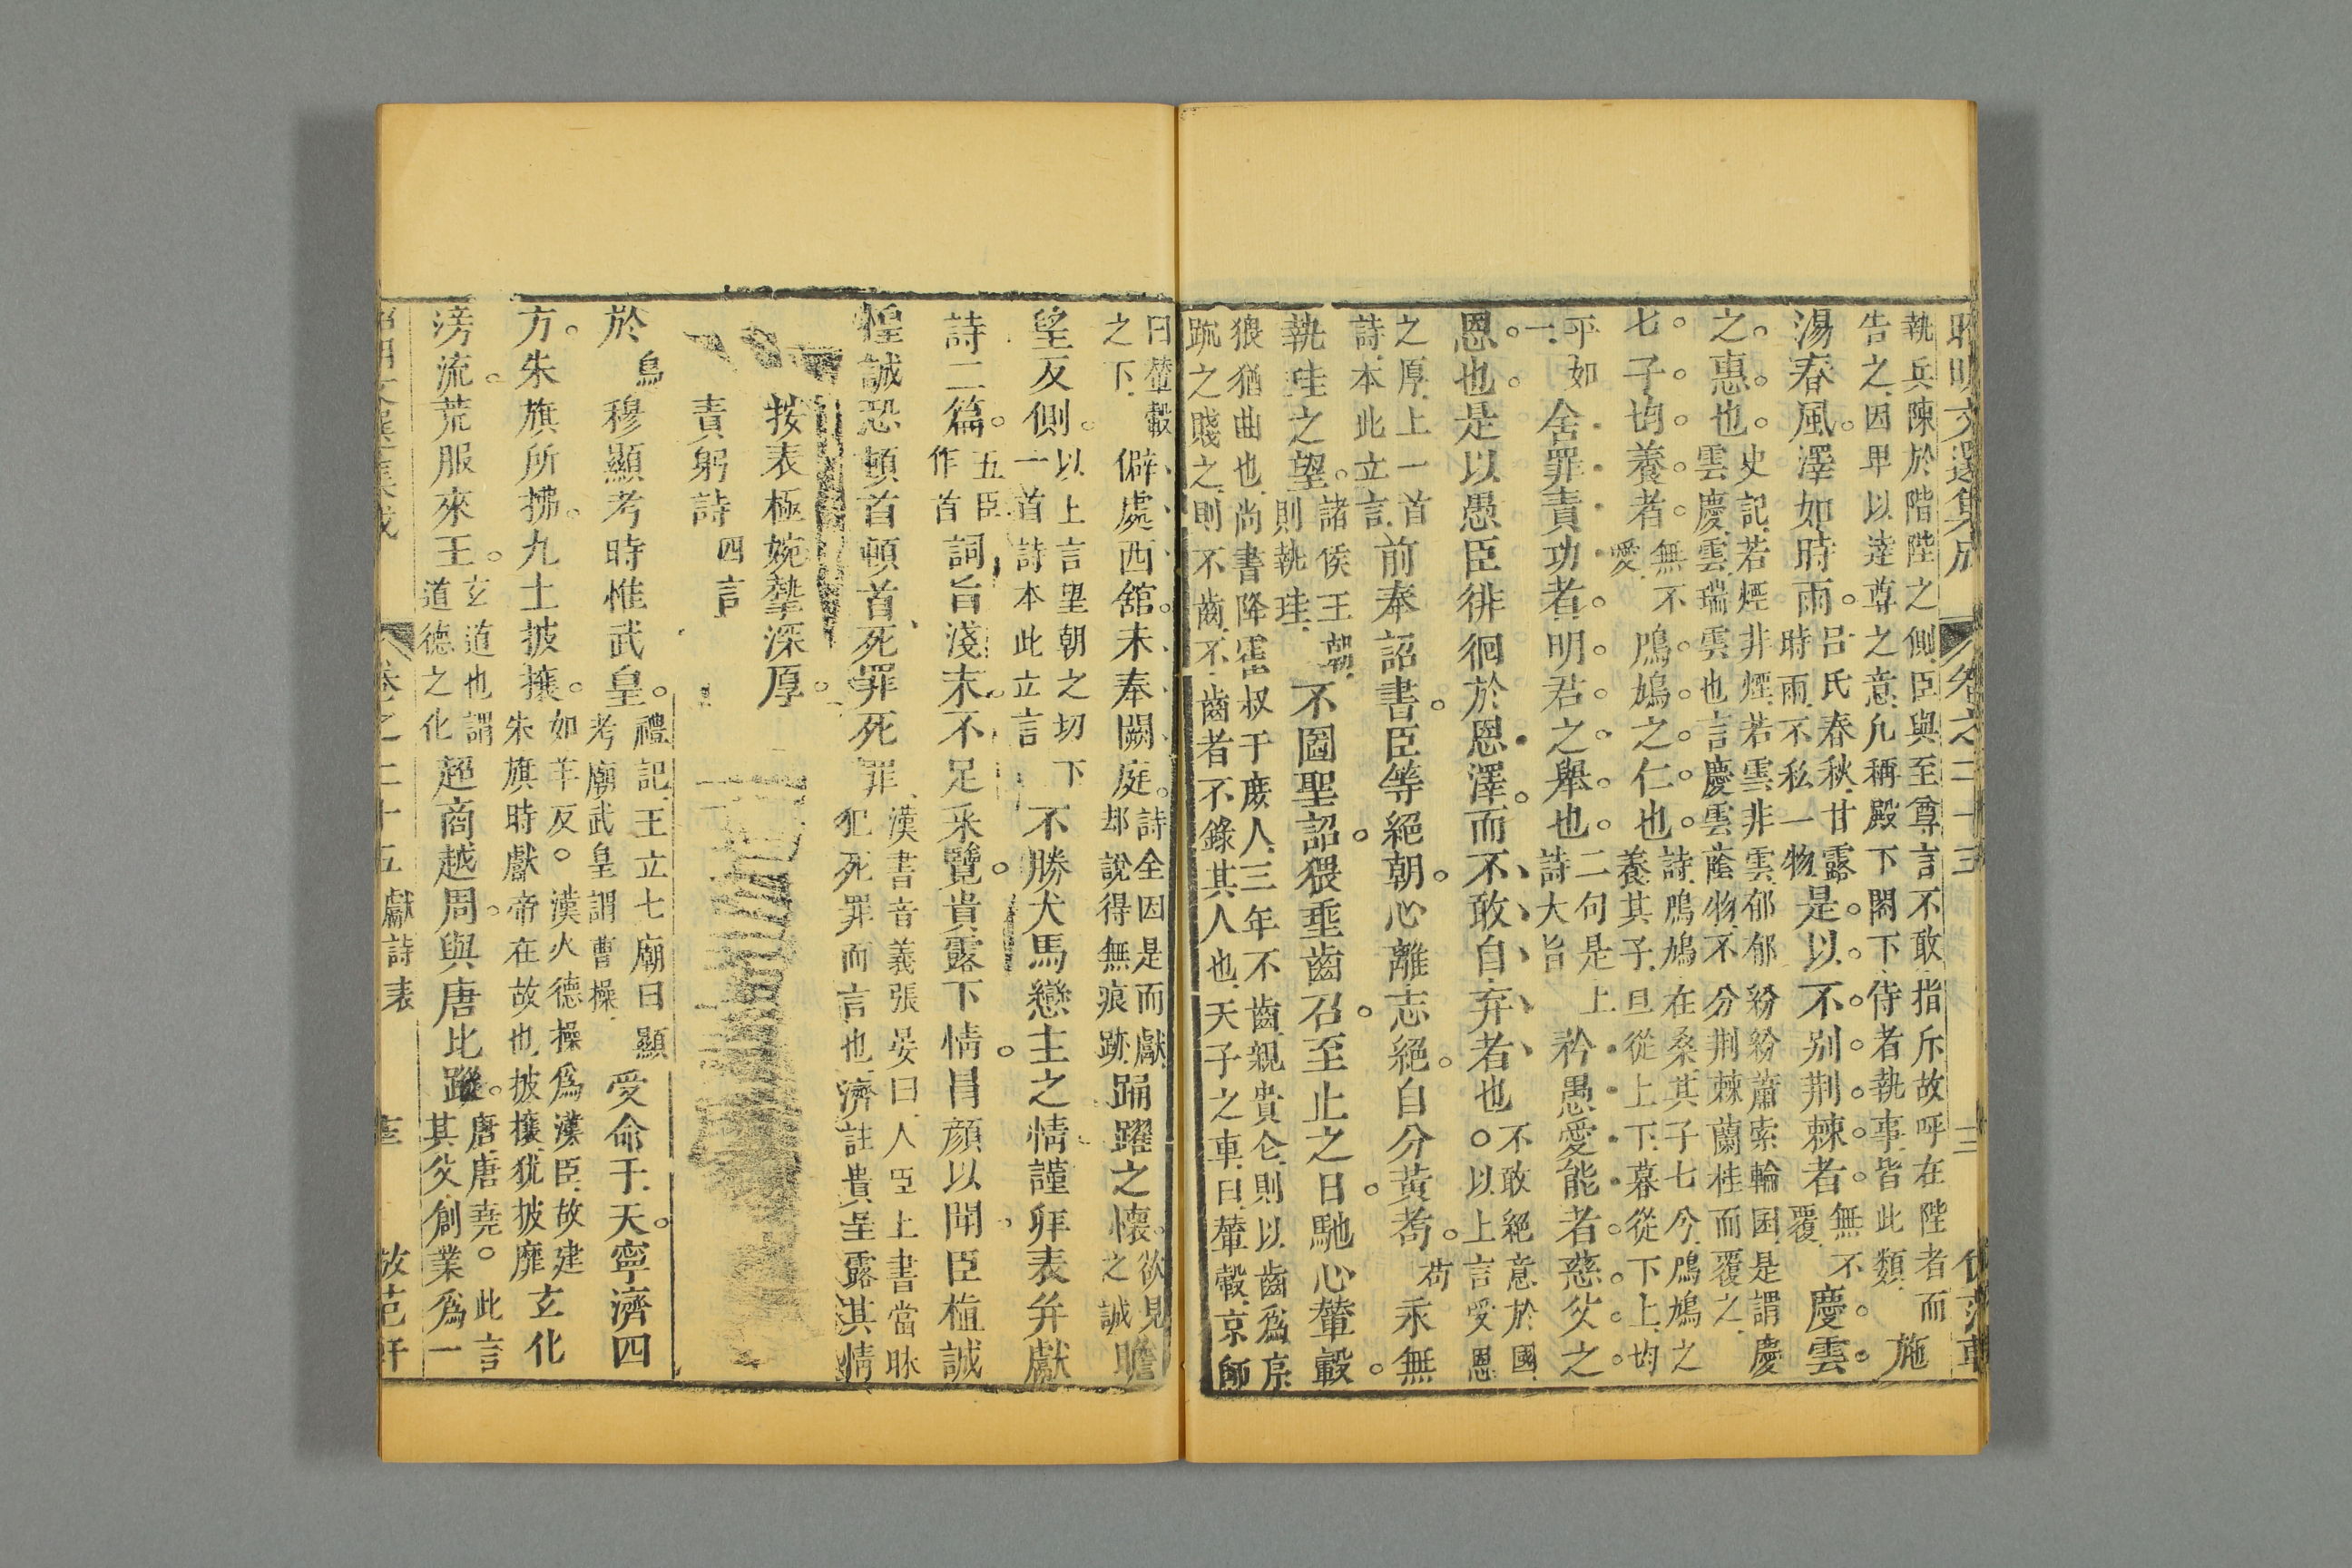 昭明文選集成 卷之二十三 三
執兵陳於階陛之側臣與至尊言不敢指斥故呼在陛者而
告之因卑以達尊之意凢稱殿下閣下侍者執事皆此類 施
湯春風。澤如時雨。呂氏春秋甘露時雨不私一物 是以不别荆棘者。無不覆 慶雲
之惠也。史記若煙非煙若雲非雲郁郁紛紛蕭索輪囷是謂慶雲慶雲瑞雲也言慶雲蔭物不分荆棘蘭桂而覆之
七子均養者。無不愛 鳲鳩之仁也。詩鳲鳩在桑其子七兮鳲鳩之養其子旦從上下暮從下上均
平如一 舍罪責功者。明君之舉也。二句是上詩大旨 矜愚愛能者。慈父之
恩也。是以愚臣徘徊於恩澤。而不敢自弃者也。不敢絕意於國以上言受恩
之厚上一首詩本此立言 前奉詔書。臣等絕朝。心離志絕。自分黃耇。耉 永無
執珪之望。諸侯王朝則執珪 不圖聖詔。猥垂齒召。至止之日。馳心輦轂。
猥猶曲也尚書降霍叔于庶人三年不齒親貴仝則以齒爲序
疏之賤之則不齒不齒者不錄其人也天子之車曰輦轂京師
曰輦轂之下 僻處西舘。未奉闕庭。詩全因是而獻却說得無痕跡 踊躍之懷。欲見之誠 瞻
望反側。以上言望朝之切下一首詩本此立言 不勝犬馬戀主之情。謹拜表并獻
詩二篇。五臣作首 詞旨淺末。不足采覽。貴露下情。冒顔以聞。臣植誠
惶誠恐頓首頓首死罪死罪 漢書音義張晏曰人臣上書當昧犯死罪而言也濟註貴呈露其情
按表極婉摯深厚。
責躬詩 四言
於烏 穆顯考時惟武皇。禮記王立七廟曰顯考廟武皇謂曹操 受命于天。寧濟四
方。朱旗所拂。九土披攘。如羊反。漢火德操爲漢臣故建朱旗時獻帝在故也披攘犹披靡 玄化
滂流。荒服來王。玄道也謂道德之化 超商越周。與唐比蹤。唐唐堯。此言其父創業爲一
卷之二十五 獻詩表